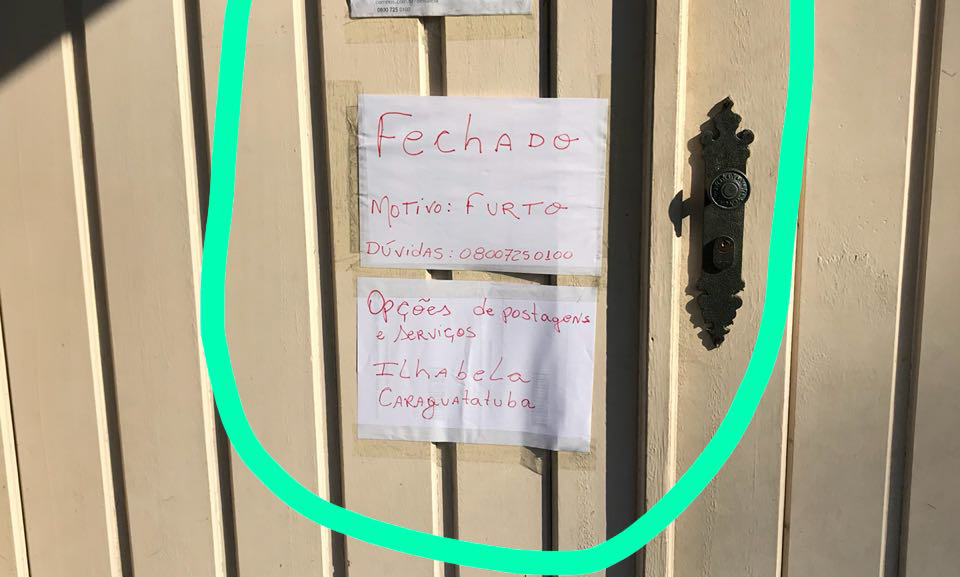 0800 725 0100
Fechado
Motivo: Furto
Dúvidas: 08007250100
Opções de postagens
e serviços
Ilhabela
Caraguatatuba